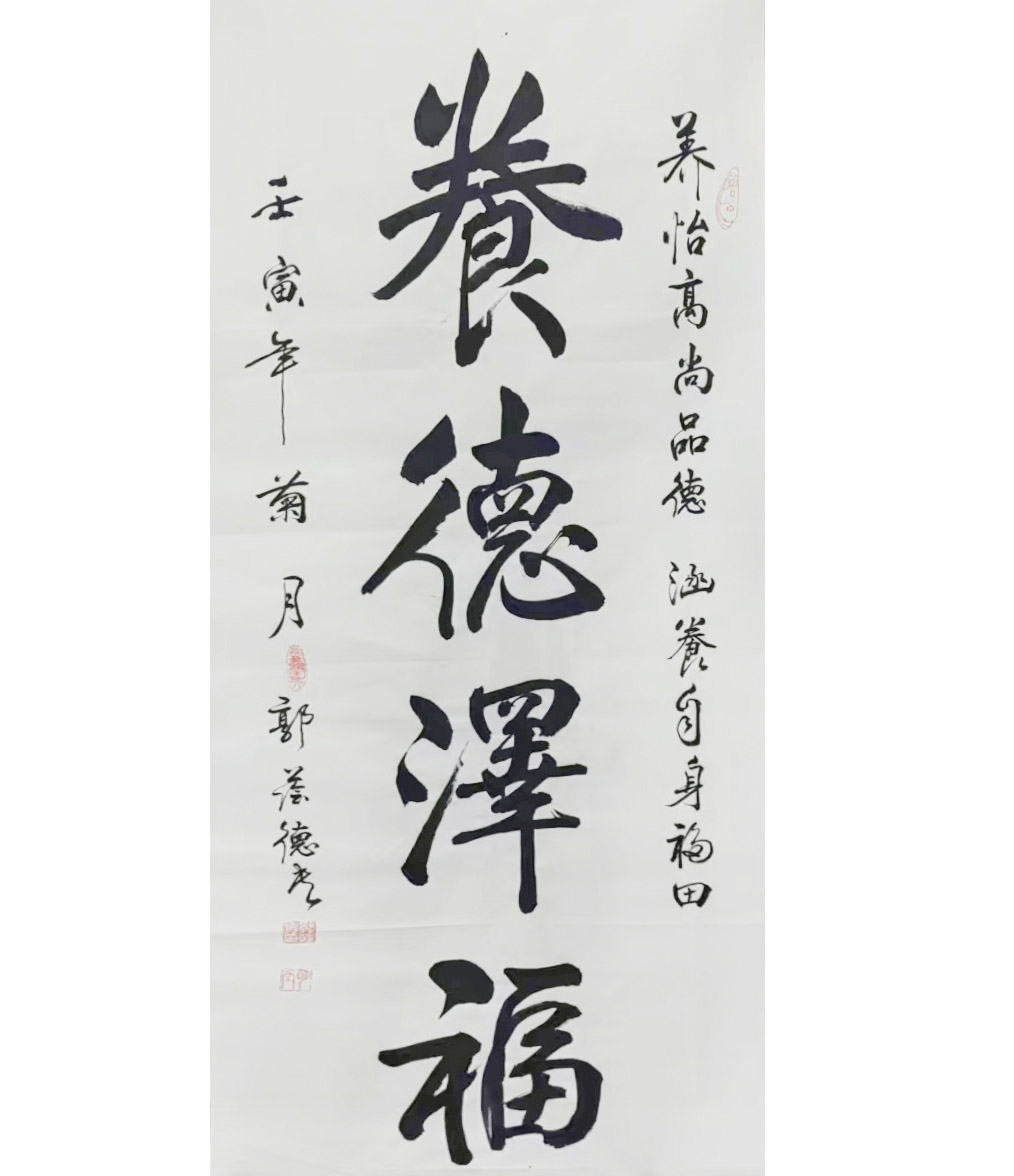 养怡高尚品德 涵養自身福田
養德澤福
壬寅年菊月
郭蓀德书